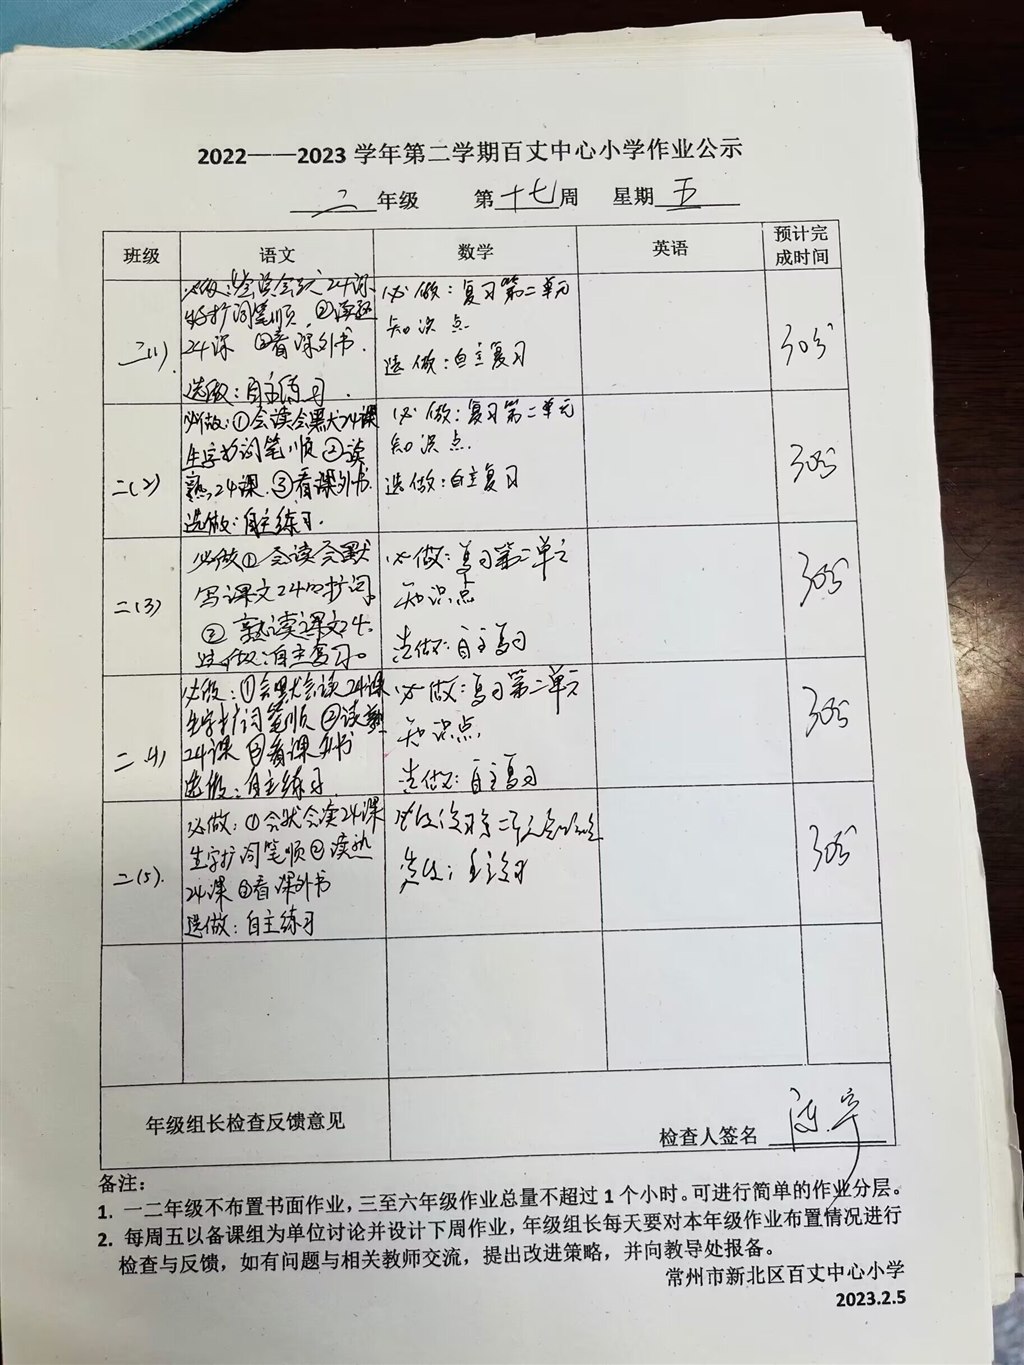 2022——2023 学年第二学期百丈中心小学作业公示
二 年级 第 十七 周 星期 五
班级 语文 数学 英语 预计完
成时间
二(1)
24课 ②看课外书.
选做:自主练习.
必做:复习第二单元
知识点
选做:自主复习
30分
二(2)
必做:①会读会默24课
生字扩词笔顺②读
熟24课.③看课外书.
选做:自主练习.
必做:复习第二单元
知识点.
选做:自主复习
30分
二(3)
必做①会读会默
写课文24的扩词.
②熟读课文24.
选做:自主复习。
必做:复习第二单元
知识点
选做:自主复习
30分
二(4)
必做:①会默会读24课
生字扩词笔顺②读熟
24课③看课外书
选做:自主练习.
必做:复习第二单元
知识点.
选做:自主复习
30分
二(5).
必做:①会默会读24课
生字扩词笔顺②读熟
24课③看课外书
选做:自主练习
选做:自主复习
30分
年级组长检查反馈意见
检查人签名
备注:
1. 一二年级不布置书面作业,三至六年级作业总量不超过1个小时。可进行简单的作业分层。
2. 每周五以备课组为单位讨论并设计下周作业,年级组长每天要对本年级作业布置情况进行
检查与反馈,如有问题与相关教师交流,提出改进策略,并向教导处报备。
常州市新北区百丈中心小学
2023.2.5